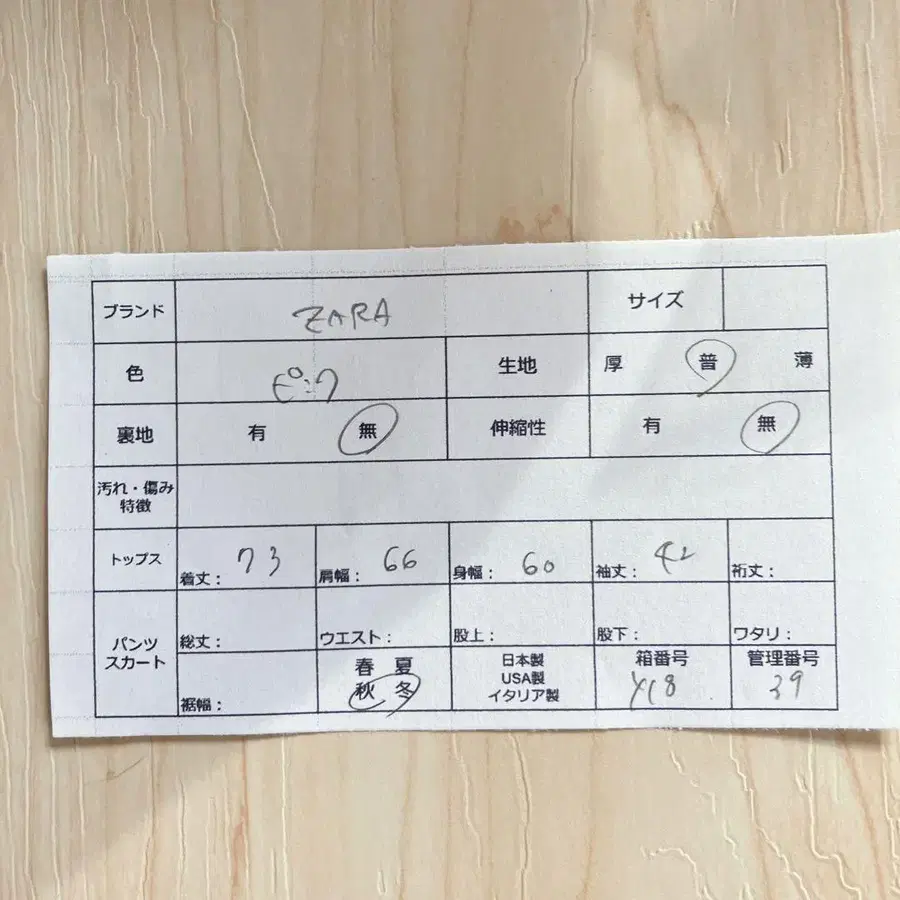 ブランド ZARA サイズ
色 ピンク 生地 厚 普 薄
裏地 有 無 伸縮性 有 無
汚れ・傷み
特徴
トップス 着丈： 73 肩幅： 66 身幅： 60 袖丈： 42 裄丈：
パンツ
スカート
総丈： ウエスト： 股上： 股下： ワタリ：
裾幅：
春 夏
秋 冬
日本製
USA製
イタリア製
箱番号
管理番号
39